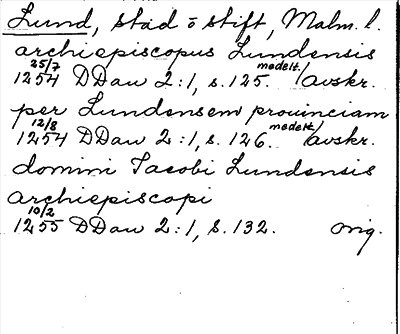 Lund, stad o stift, Malm. l.
archiepiscopus Lundensis
25/7 medelt.
1254 DDan 2:1, s. 125. /avskr.
per Lundensem prouinciam
12/8 medelt.
1254 DDan 2:1, s. 126. /avskr.
domini Jacobi Lundensis
archiepiscopi
10/2
1255 DDan 2:1, s. 132. orig.